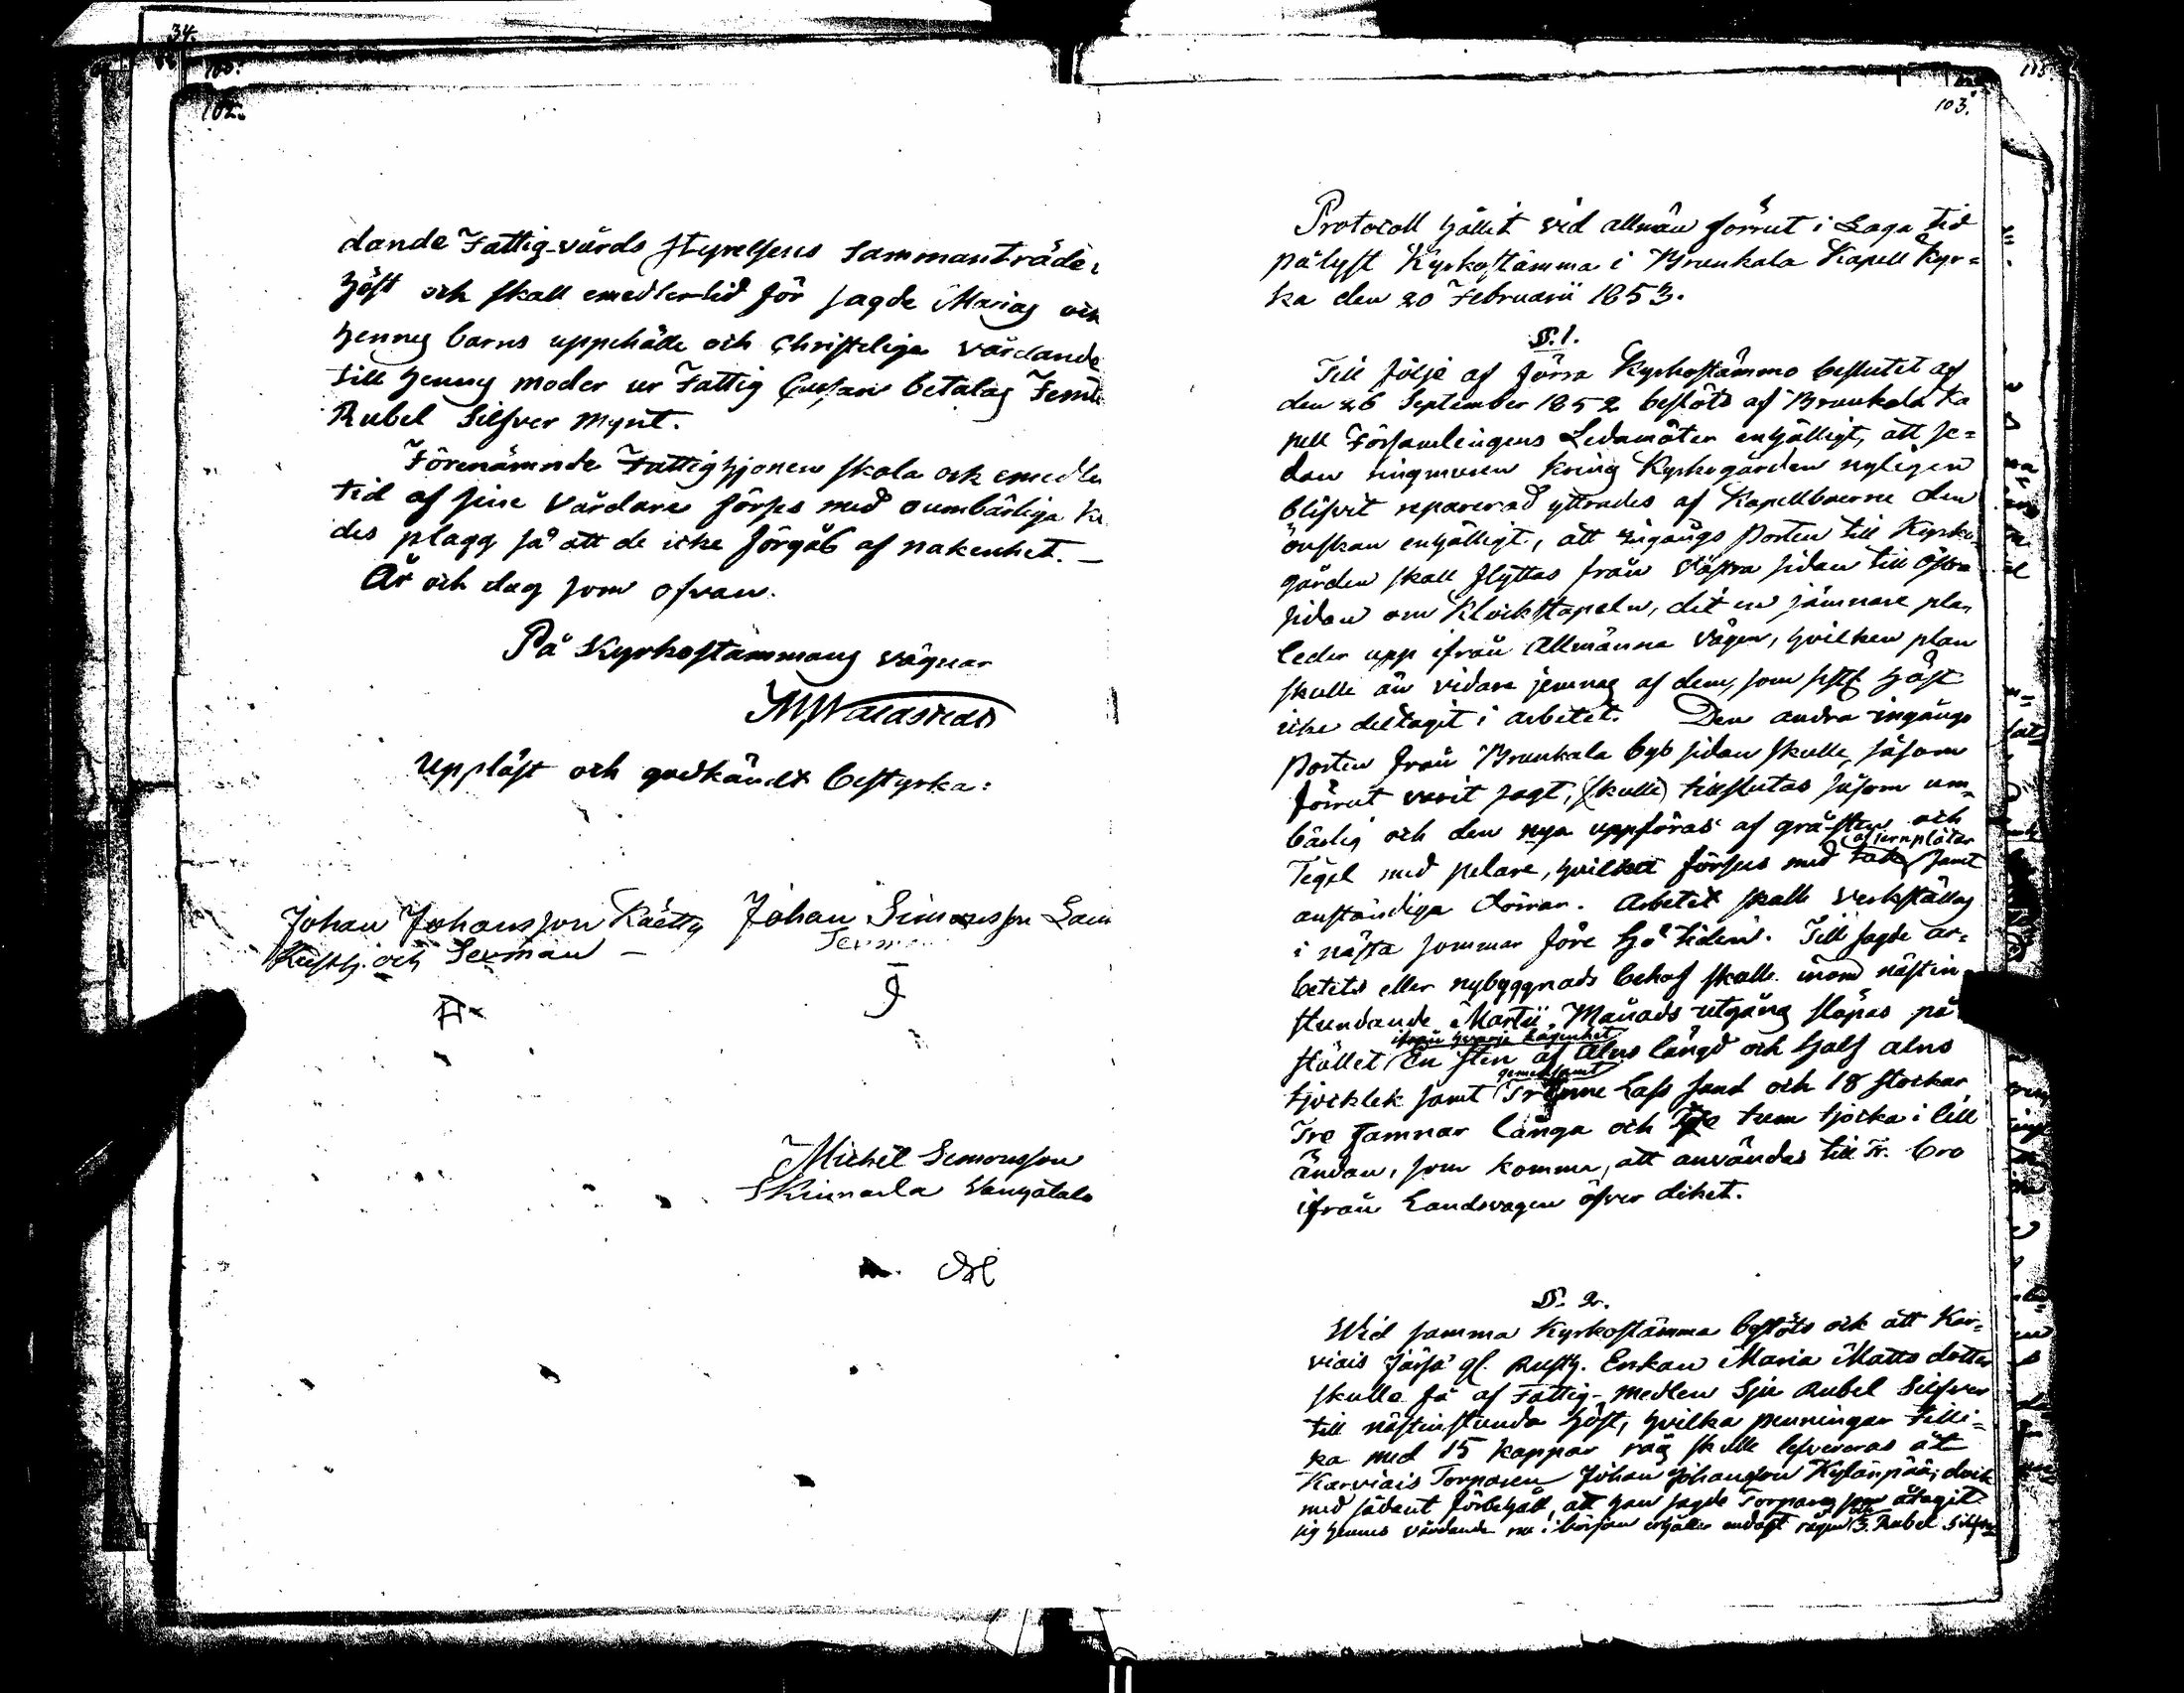 34.
100.
102.
dande Fattig-vårds styrelsens sammanträde i
höst och skall emedlertid för sagde Marias och
hennes barns uppehälle och Christeliga vårdande
till hennes moder ur Fattig Cassan betalas Femt
Rubel Silfver Mynt.
Förenämnde Fattighjonen skola ock emedler
tid af sine Vårdare förses med oumbärliga Kä
des plagg så att de icke förgås af nakenhet. —
År och dag som ofvan.
På Kyrkostämmans vägnar
Uppläst och godkändt bestyrka:
Johan Johansson Räetty Johan Simonsson Lam
Rusth. och Sexman — Sexm
Michel Simonsson
113.
103.
Protocoll hållit vid allmän förrut i Laga tid
pålyst Kyrkostämma i Brunkala Kapell Kyr=
ka den 20 Februarii 1853.
§. 1.
Till följe af förra Kyrkostämmo beslutet af
den 26 September 1852 beslöts af Brunkala Ka
pell Församlingens Ledamöter enhälligt, att se=
dan ringmuren kring Kyrkogården nyligen
blifvit reparerad yttrades af Kapellboerne den
önskan enhälligt, att ingångs Porten till Kyrko=
gården skall flyttas från Västra sidan till Östra
sidan om Klockstapeln, dit en jämnare plan
leder upp ifrån Allmänna Vägen, hvilken plan
skulle än vidare jemnas af dem, som sistl. höst
icke deltagit i arbetet. Den andra ingångs
Porten från Brunkala bys sidan skulle, såsom
förrut varit sagt, (skulle) tillslutas såsom um=
bärlig och den nya uppföras af grå-sten och
Tegel med pelare, hvilket förses med tak af jernplåtar samt
anständiga dörrar. Arbetet skall verkställas
i nästa sommar före hö tiden. Till sagde ar=
betets eller nybyggnads behof skall inom nästin
stundande Martii Månads utgång släpas på
ifrån hvarje Lägenhet
stället En sten af Alns längd och half alns
gemensamt
tjocklek samt Trenne Lass sand och 18 stockar
Tre famnar långa och Tre tum tjocka i lill
ändan, som komma, att användas till Tr. bro
ifrån Landsvägen öfver diket.
§. 2.
Wid samma Kyrkostämma beslöts ock att Kar=
viais Järsä gl. Rusth. Enkan Maria Matts dotter
skulle få af Fattig-medlen Sju Rubel Silfver
till nästinstunda höst, hvilka penningar tilli=
ka med 15 kappar råg skulle lefvereras åt
Karviais Torparen Johan Johansson Kylänpää, dock
med sådant förbehåll, att han sagde Torpare som åtagit
sig hennes vårdande nu i början erhåller endast rågen och 3. Rubel Silfver